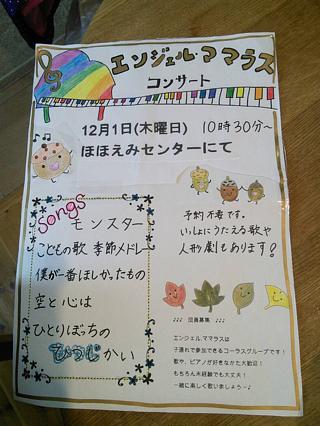 エンジェルママラス
コンサート
12月1日(木曜日) 10時30分~
ほほえみセンターにて
Songs
モンスター
こどもの歌 季節メドレー
僕が一番ほしかったもの
空と心は
ひとりぼっちの
ひつじかい
予約不要です。
いっしょにうたえる歌や
人形劇もあります!
♪♪♪ 団員募集 ♪♪♪
エンジェルママラスは
子連れで参加できるコーラスグループです!
歌や、ピアノが好きなかた大歓迎!
もちろん未経験でも大丈夫!
一緒に楽しく歌いましょう~♪